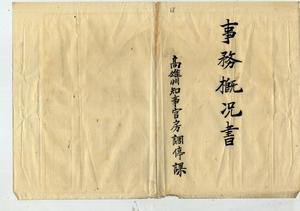 事務概況書
高雄州知事官房調停課